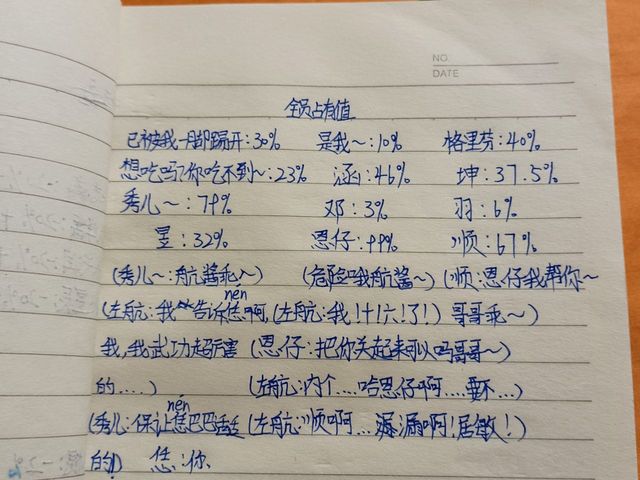 NO.
DATE
全员占有值
已被我一脚踢开:30% 是我～:10% 格里芬:40%
想吃吗?你吃不到～:23% 涵:46% 坤:37.5%
秀儿～:79% 邓:3% 羽:6%
昱:32% 恩仔:99% 顺:67%
(秀儿～:航酱乖～) (危险哦航酱～) (顺:恩仔我帮你～
nén
(左航:我 告诉恁啊, (左航:我!十!六!了!) 哥哥乖～)
我,我武功超厉害 (恩仔:把你关起来可以吗哥哥～)
的....) (左航:内个....哈恩仔啊....要不...)
nén
(秀儿:保让恁巴巴适适 (左航:顺啊...漏漏啊!居敏!)
的!) 恁:你